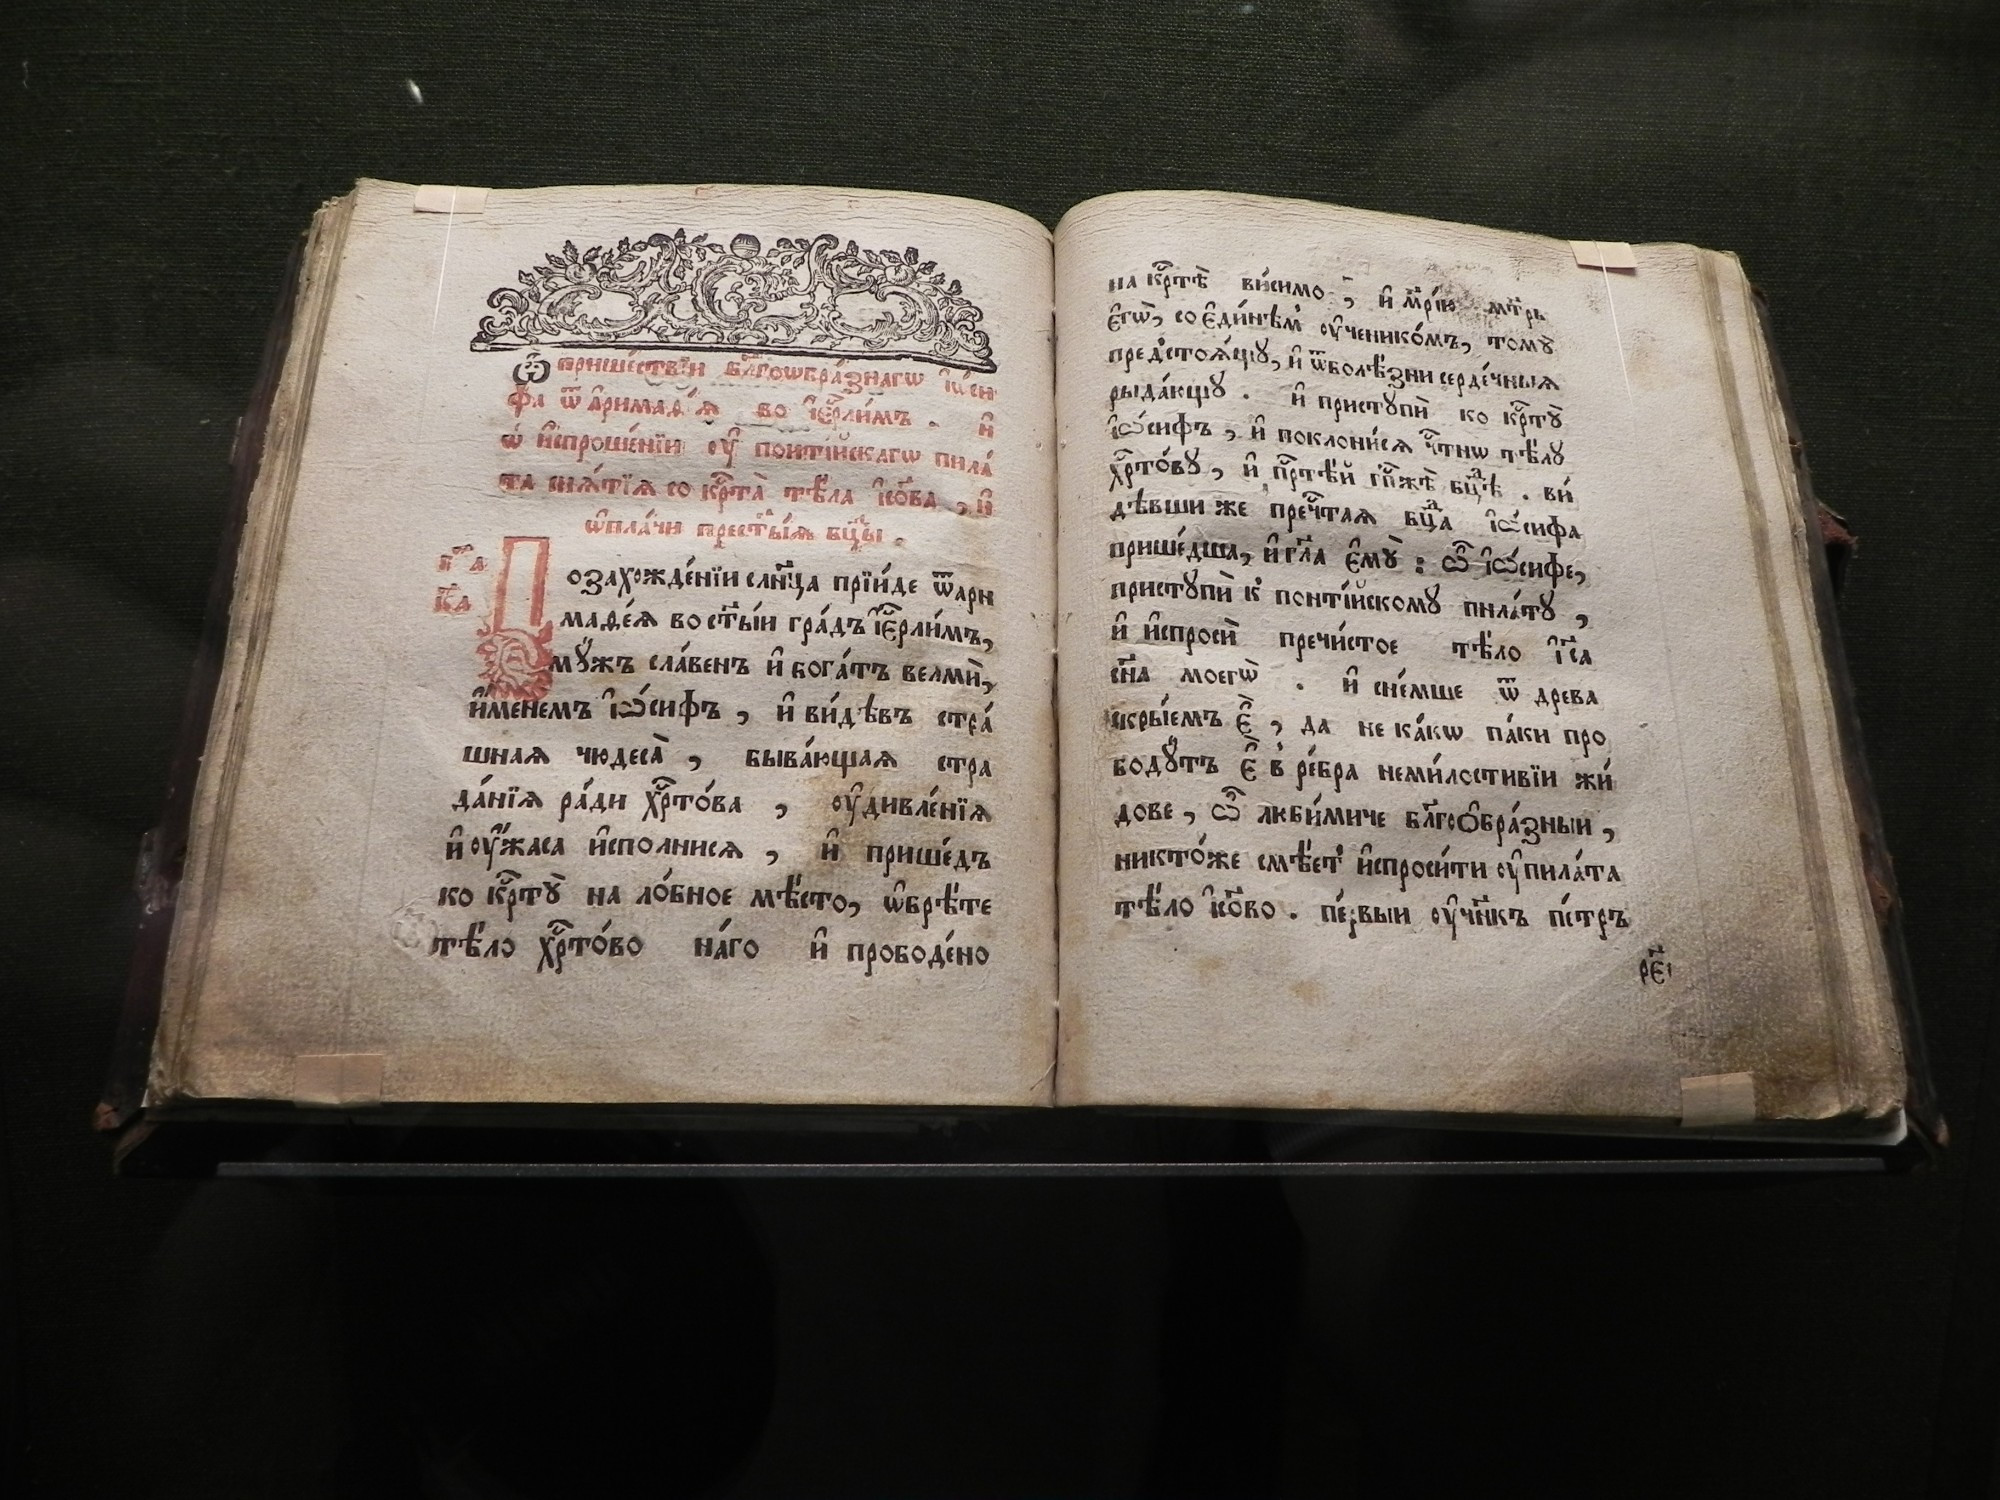 Ѽ пришéствїи бл҃гоѡбрáзнагѡ і҆ѡ́си
фа ѿ а҆римаѳéѧ во і҆ерⷭ҇ли́мъ . и҆
ѡ҆ и҆спрошéнїи ᲂу҆ понті́йскагѡ пилá
та снѧ́тїѧ со крⷭ҇тà тѣ́ла і҆сⷭ҇ова , и҆
ѡ҆ плáчи прест҃ы́ѧ бцⷣы .
гл҃а
к҃а
Позахождéнїи слн҃ца прїи́де ѿ ари
маѳéѧ во ст҃ы́и грáдъ і҆ерⷭ҇ли́мъ,
мꙋ́жъ слáвенъ и҆ богáтъ велмѝ,
и҆́менемъ і҆ѡ́сифъ , и҆ ви́дѣвъ стрá
шнаѧ чюдесà , бывáющаѧ стра
дáнїѧ рáди хрⷭ҇тóва , ᲂу҆дивлéнїѧ
и҆ ᲂу҆́жаса и҆спо́лнисѧ , и҆ пришéдъ
ко крⷭ҇тꙋ̀ на лóбное мѣ́сто, ѡ҆брѣ́те
тѣ́ло хрⷭ҇тóво нáго и҆ прободéно
на крⷭ҇тѣ̀ ви́симо , и҆ мр҃і́ю мт҃рь
є҆гѡ̀, со є҆ди́нѣмъ ᲂу҆ченикóмъ, томꙋ̀
предстоѧ́щꙋ, и҆ ѿ болѣ́зни сердéчныѧ
рыдáющꙋ . и҆ пристꙋпѝ ко крⷭ҇тꙋ̀
і҆ѡ́сифъ , и҆ поклони́сѧ чⷭ҇тнѡ тѣ́лꙋ
хрⷭ҇тóвꙋ, и҆ прⷭ҇тѣ́й гп҃жѣ̀ бцⷣѣ . ви́
дѣвши же пречⷭ҇таѧ бцⷣа і҆ѡ́сифа
пришéдша, и҆ гл҃а є҆мꙋ̀ : ѽ і҆ѡ́сифе,
пристꙋпѝ к̾ понті́йскомꙋ пилáтꙋ ,
и҆ и҆спросѝ пречи́стое тѣ́ло і҆сⷭ҇а
сн҃а моегѡ̀ . и҆ снéмше ѿ древа
скры́емъ є҆̀ , да не кáкѡ пáки про
бодꙋ́тъ є҆̀ в̾ рéбра неми́лостивїи жи́
дове , ѽ люби́миче бл҃гоѻбрáзныи ,
никтóже смѣ́етъ и҆спроси́ти ᲂу҆ пилáта
тѣ́ло і҆сⷭ҇ово . пéрвыи ᲂу҆чн҃къ пéтръ